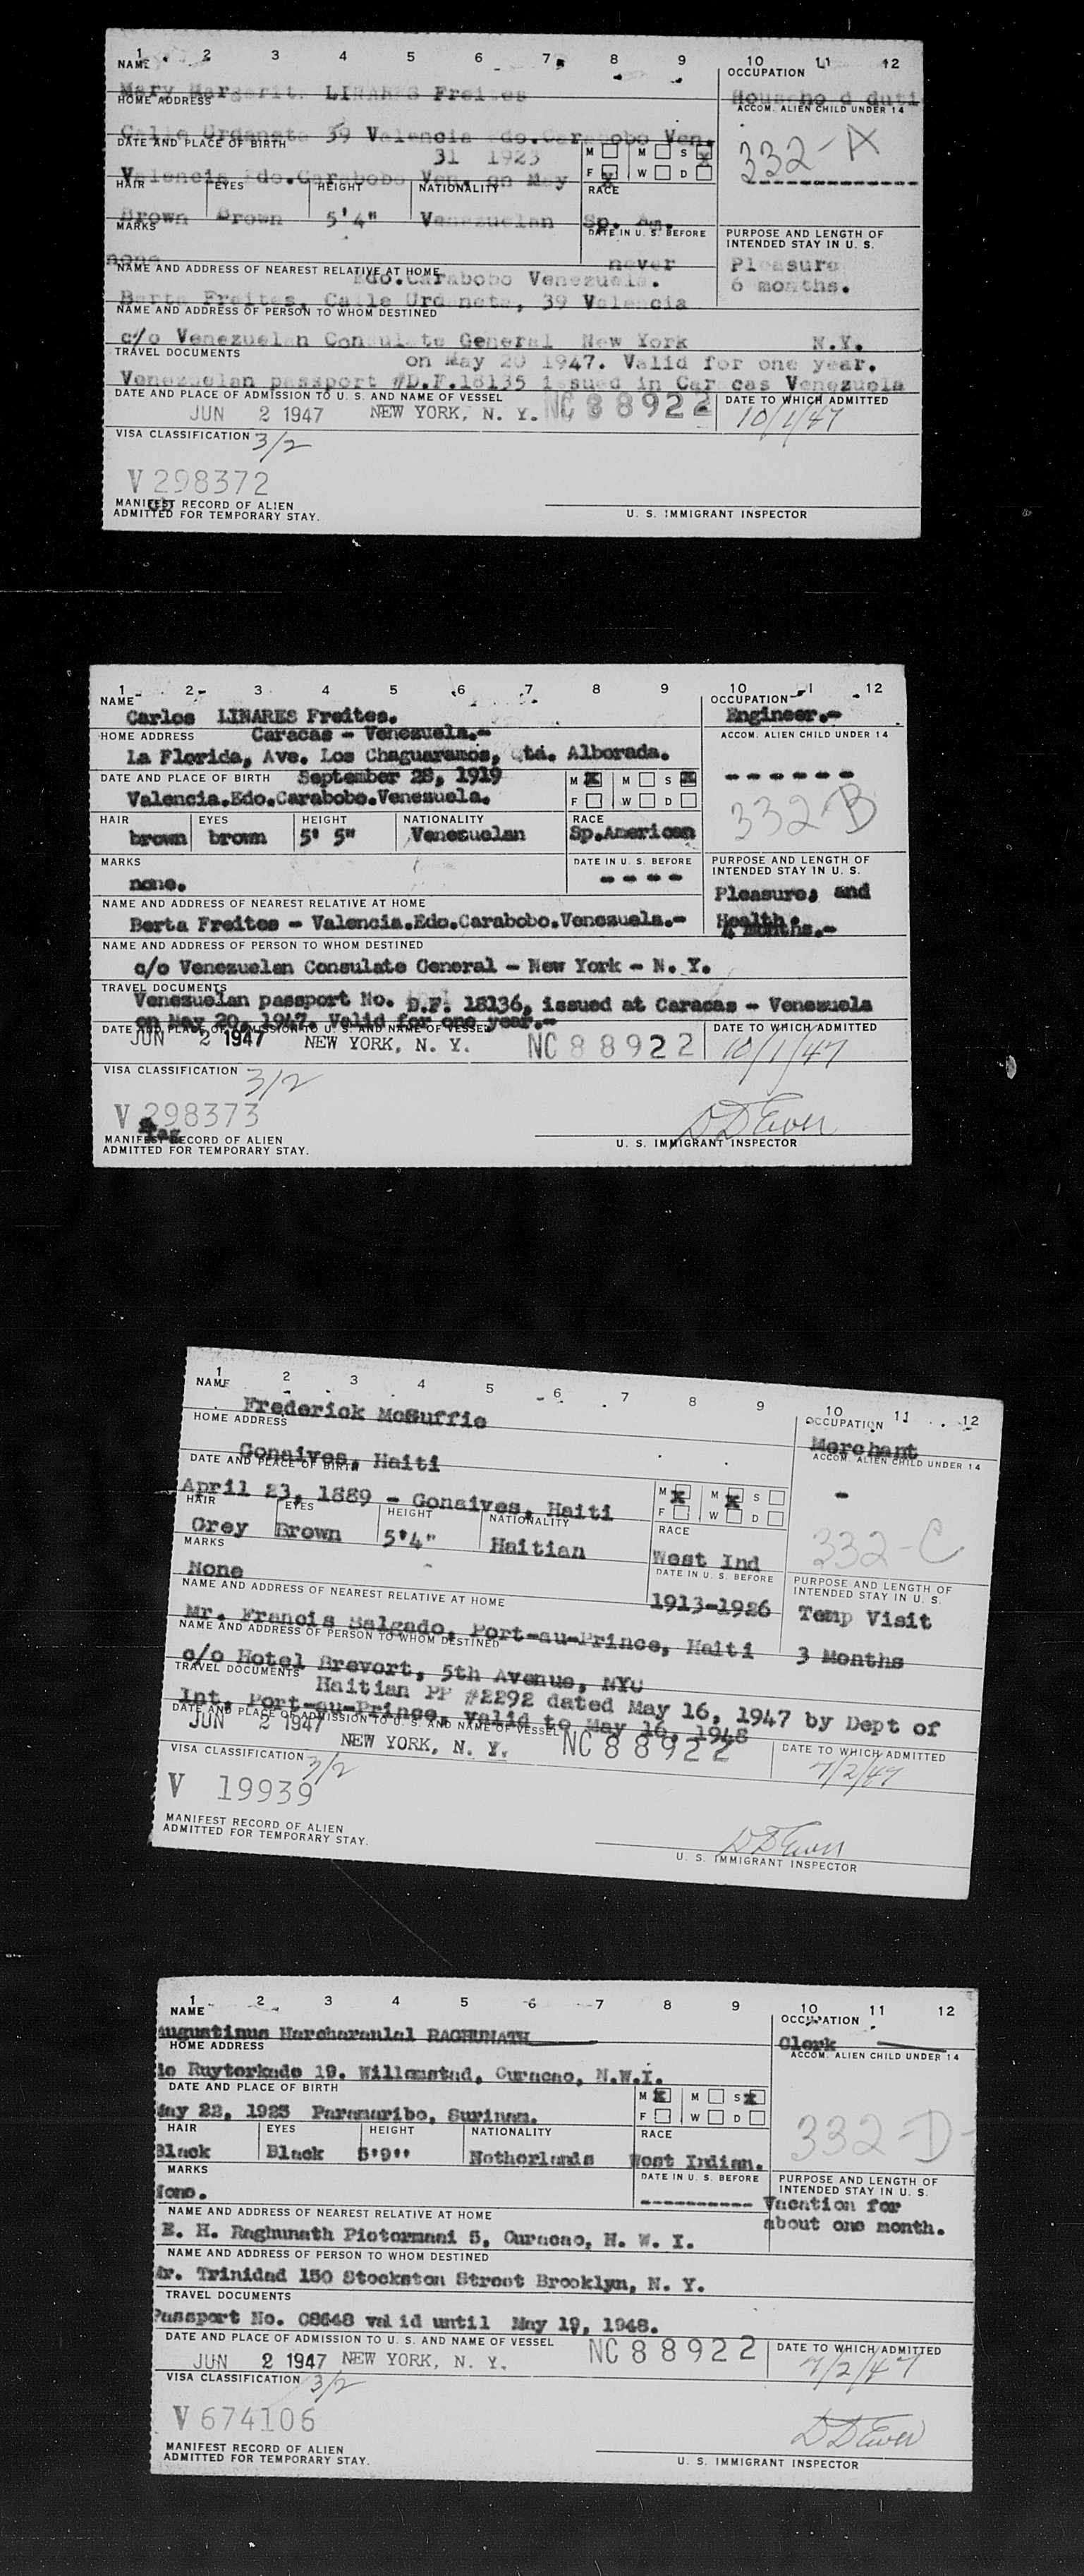 1 2 3 4 5 6 7 8 9 10 11 12
NAME OCCUPATION
Mary Margarita LINARES Freites Household duti
HOME ADDRESS ACCOM. ALIEN CHILD UNDER 14
Calle Urdaneta 39 Valencia Edo.Carabobo Ven.
332-A
DATE AND PLACE OF BIRTH
31 1923 M M S X
Valencia Edo.Carabobo Ven. on May F X W D
HAIR EYES HEIGHT NATIONALITY RACE
Brown Brown 5'4" Venezuelan Sp. Am.
MARKS DATE IN U. S. BEFORE PURPOSE AND LENGTH OF
INTENDED STAY IN U. S.
none never Pleasure
NAME AND ADDRESS OF NEAREST RELATIVE AT HOME
Edo.Carabobo Venezuela. 6 months.
Berta Freites, Calle Urdaneta, 39 Valencia
NAME AND ADDRESS OF PERSON TO WHOM DESTINED
c/o Venezuelan Consulate General New York N.Y.
TRAVEL DOCUMENTS
on May 20 1947. Valid for one year.
Venezuelan passport #D.F.18135 issued in Caracas Venezuela
DATE AND PLACE OF ADMISSION TO U. S. AND NAME OF VESSEL DATE TO WHICH ADMITTED
JUN 2 1947 NEW YORK, N. Y. NC 88922 10/1/47
VISA CLASSIFICATION 3/2
V 298372
MANIFEST RECORD OF ALIEN
ADMITTED FOR TEMPORARY STAY. U. S. IMMIGRANT INSPECTOR
1 2 3 4 5 6 7 8 9 10 11 12
NAME OCCUPATION
Carlos LINARES Freites. Engineer.-
HOME ADDRESS Caracas - Venezuela.- ACCOM. ALIEN CHILD UNDER 14
La Florida, Ave. Los Chaguaramos, Qta. Alborada.
DATE AND PLACE OF BIRTH September 28, 1919 M X M S X ------
Valencia.Edo.Carabobo.Venezuela. F W D 332-B
HAIR EYES HEIGHT NATIONALITY RACE
brown brown 5' 5" Venezuelan Sp.American
MARKS DATE IN U. S. BEFORE PURPOSE AND LENGTH OF
INTENDED STAY IN U. S.
none. ---- Pleasure, and
NAME AND ADDRESS OF NEAREST RELATIVE AT HOME
Berta Freites - Valencia.Edo.Carabobo.Venezuela.- Health.
4 months.-
NAME AND ADDRESS OF PERSON TO WHOM DESTINED
c/o Venezuelan Consulate General - New York - N. Y.
TRAVEL DOCUMENTS
Venezuelan passport No. D.F. 18136, issued at Caracas - Venezuela
on May 20, 1947. Valid for one year.-
DATE AND PLACE OF ADMISSION TO U. S. AND NAME OF VESSEL DATE TO WHICH ADMITTED
JUN 2 1947 NEW YORK, N. Y. NC 88922 10/1/47
VISA CLASSIFICATION 3/2
V 298373
MANIFEST RECORD OF ALIEN
ADMITTED FOR TEMPORARY STAY. DDEwen U. S. IMMIGRANT INSPECTOR
1 2 3 4 5 6 7 8 9 10 11 12
NAME OCCUPATION
Frederick McGuffie Merchant
HOME ADDRESS ACCOM. ALIEN CHILD UNDER 14
Gonaives, Haiti
DATE AND PLACE OF BIRTH M X M X S -
April 23, 1889 - Gonaives, Haiti F W D
HAIR EYES HEIGHT NATIONALITY RACE 332-C
Grey Brown 5'4" Haitian West Ind
MARKS DATE IN U. S. BEFORE PURPOSE AND LENGTH OF
INTENDED STAY IN U. S.
None 1913-1926 Temp Visit
NAME AND ADDRESS OF NEAREST RELATIVE AT HOME
Mr. Francis Salgado, Port-au-Prince, Haiti 3 Months
NAME AND ADDRESS OF PERSON TO WHOM DESTINED
c/o Hotel Brevort, 5th Avenue, NYC
TRAVEL DOCUMENTS
Haitian PP #2292 dated May 16, 1947 by Dept of
Int. Port-au-Prince, valid to May 16, 1948
DATE AND PLACE OF ADMISSION TO U. S. AND NAME OF VESSEL DATE TO WHICH ADMITTED
JUN 2 1947 NEW YORK, N. Y. NC 88922 7/2/47
VISA CLASSIFICATION 3/2
V 19939
MANIFEST RECORD OF ALIEN
ADMITTED FOR TEMPORARY STAY. DDEwen U. S. IMMIGRANT INSPECTOR
1 2 3 4 5 6 7 8 9 10 11 12
NAME OCCUPATION
Augustinus Harcharanlal RAGHUNATH Clerk
HOME ADDRESS ACCOM. ALIEN CHILD UNDER 14
de Ruyterkade 19. Willemstad, Curacao, N.W.I.
DATE AND PLACE OF BIRTH M X M S X
May 22, 1923 Paramaribo, Surinam. F W D
HAIR EYES HEIGHT NATIONALITY RACE 332-D
Black Black 5'9" Netherlands West Indian.
MARKS DATE IN U. S. BEFORE PURPOSE AND LENGTH OF
INTENDED STAY IN U. S.
None. ---------- Vacation for
NAME AND ADDRESS OF NEAREST RELATIVE AT HOME about one month.
E. H. Raghunath Pietermaai 5, Curacao, N. W. I.
NAME AND ADDRESS OF PERSON TO WHOM DESTINED
Mr. Trinidad 150 Stockston Street Brooklyn, N. Y.
TRAVEL DOCUMENTS
Passport No. 08648 valid until May 19, 1948.
DATE AND PLACE OF ADMISSION TO U. S. AND NAME OF VESSEL DATE TO WHICH ADMITTED
JUN 2 1947 NEW YORK, N. Y. NC 88922 7/2/47
VISA CLASSIFICATION 3/2
V 674106
MANIFEST RECORD OF ALIEN
ADMITTED FOR TEMPORARY STAY. DDEwen U. S. IMMIGRANT INSPECTOR